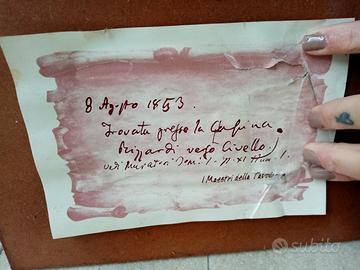 8 Agosto 1853.
Trovata presso la Cascina
Rizzardi verso Civello.
vedi Muratori Tom: I.
I Maestri della Tavolozza
subito